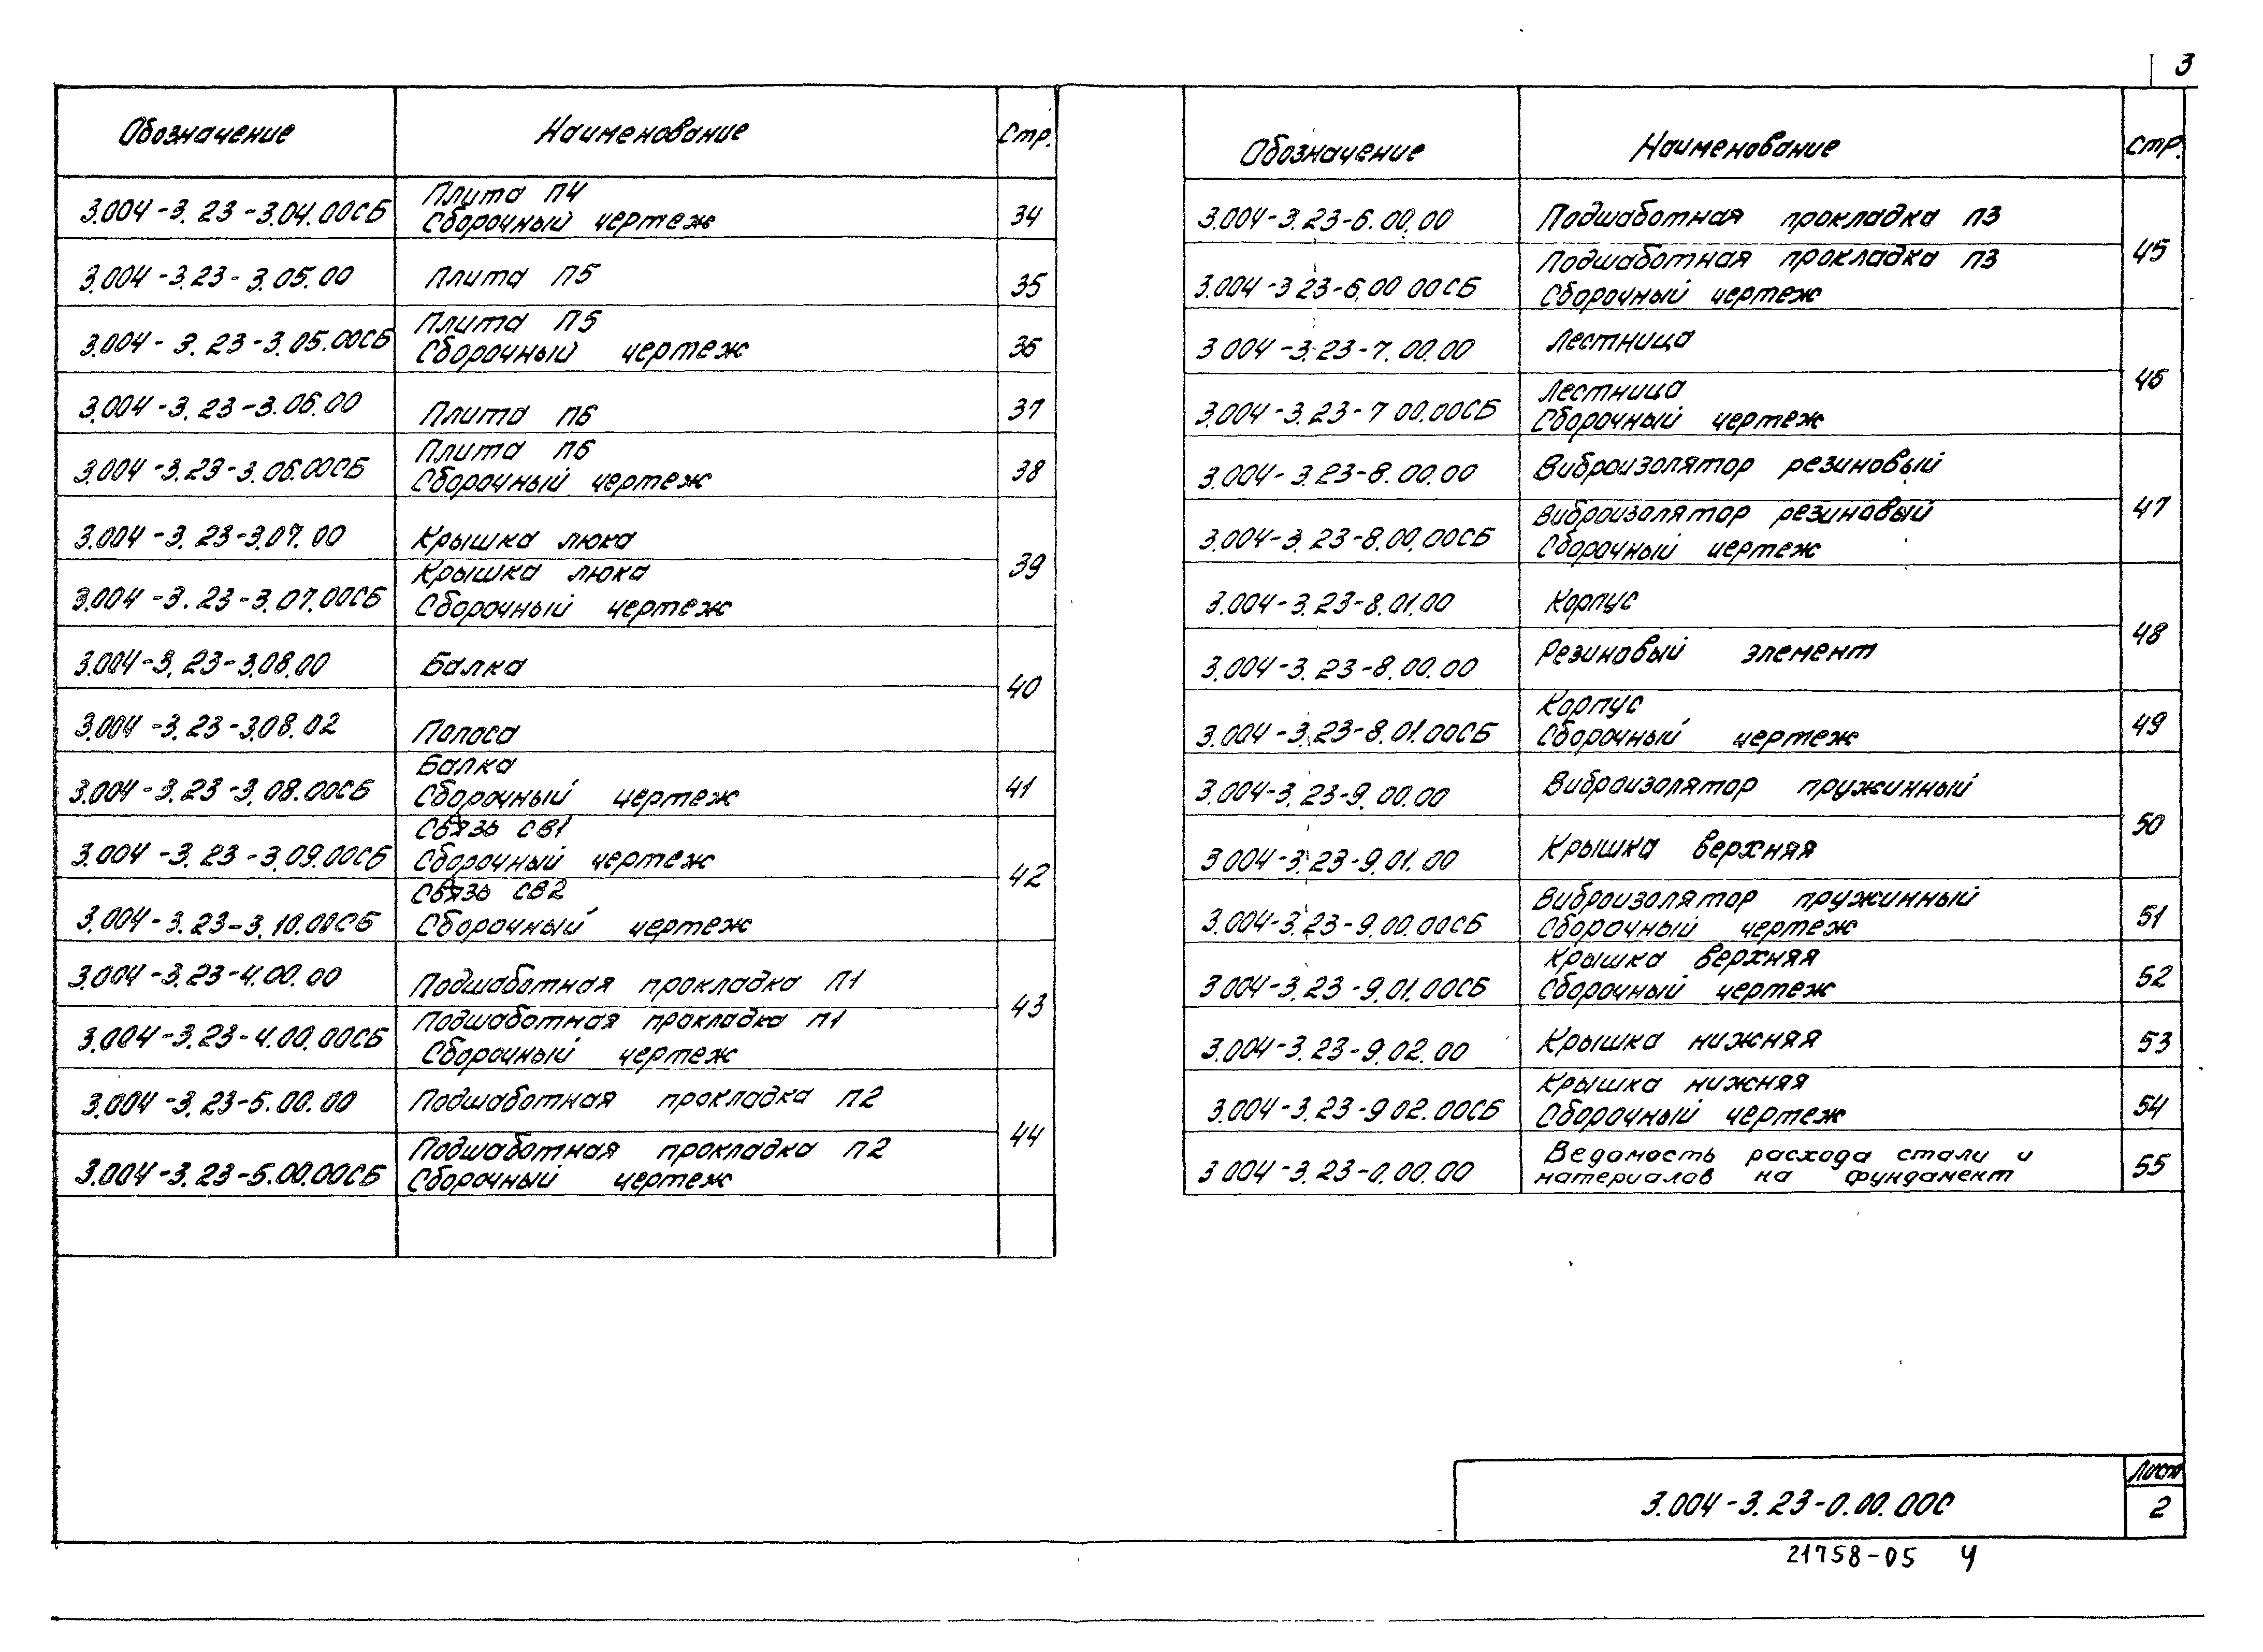 3
Обозначение Наименование Стр.
3.004-3.23-3.04.00СБ Плита П4
Сборочный чертеж 34
3.004-3.23-3.05.00 Плита П5 35
3.004-3.23-3.05.00СБ Плита П5
Сборочный чертеж 36
3.004-3.23-3.06.00 Плита П6 37
3.004-3.23-3.06.00СБ Плита П6
Сборочный чертеж 38
3.004-3.23-3.07.00 Крышка люка
39
3.004-3.23-3.07.00СБ Крышка люка
Сборочный чертеж
3.004-3.23-3.08.00 Балка
40
3.004-3.23-3.08.02 Полоса
3.004-3.23-3.08.00СБ Балка
Сборочный чертеж 41
3.004-3.23-3.09.00СБ Связь СВ1
Сборочный чертеж
42
3.004-3.23-3.10.00СБ Связь СВ2
Сборочный чертеж
3.004-3.23-4.00.00 Подшаботная прокладка П1
43
3.004-3.23-4.00.00СБ Подшаботная прокладка П1
Сборочный чертеж
3.004-3.23-5.00.00 Подшаботная прокладка П2
44
3.004-3.23-5.00.00СБ Подшаботная прокладка П2
Сборочный чертеж
Обозначение Наименование Стр.
3.004-3.23-6.00.00 Подшаботная прокладка П3
45
3.004-3 23-6.00 00СБ Подшаботная прокладка П3
Сборочный чертеж
3 004-3.23-7.00.00 Лестница
46
3.004-3.23-7 00.00СБ Лестница
Сборочный чертеж
3.004-3.23-8.00.00 Виброизолятор резиновый
47
3.004-3.23-8.00.00СБ Виброизолятор резиновый
Сборочный чертеж
3.004-3.23-8.01.00 Корпус
48
3.004-3.23-8.00.00 Резиновый элемент
3.004-3.23-8.01.00СБ Корпус
Сборочный чертеж 49
3.004-3.23-9.00.00 Виброизолятор пружинный
50
3 004-3.23-9.01.00 Крышка верхняя
3.004-3.23-9.00.00СБ Виброизолятор пружинный
Сборочный чертеж 51
3 004-3.23-9.01.00СБ Крышка верхняя
Сборочный чертеж 52
3.004-3.23-9.02.00 Крышка нижняя 53
3.004-3.23-9 02.00СБ Крышка нижняя
Сборочный чертеж 54
3 004-3.23-0.00.00 Ведомость расхода стали и
материалов на фундамент 55
3.004-3.23-0.00.00С
Лист
2
21758-05 4